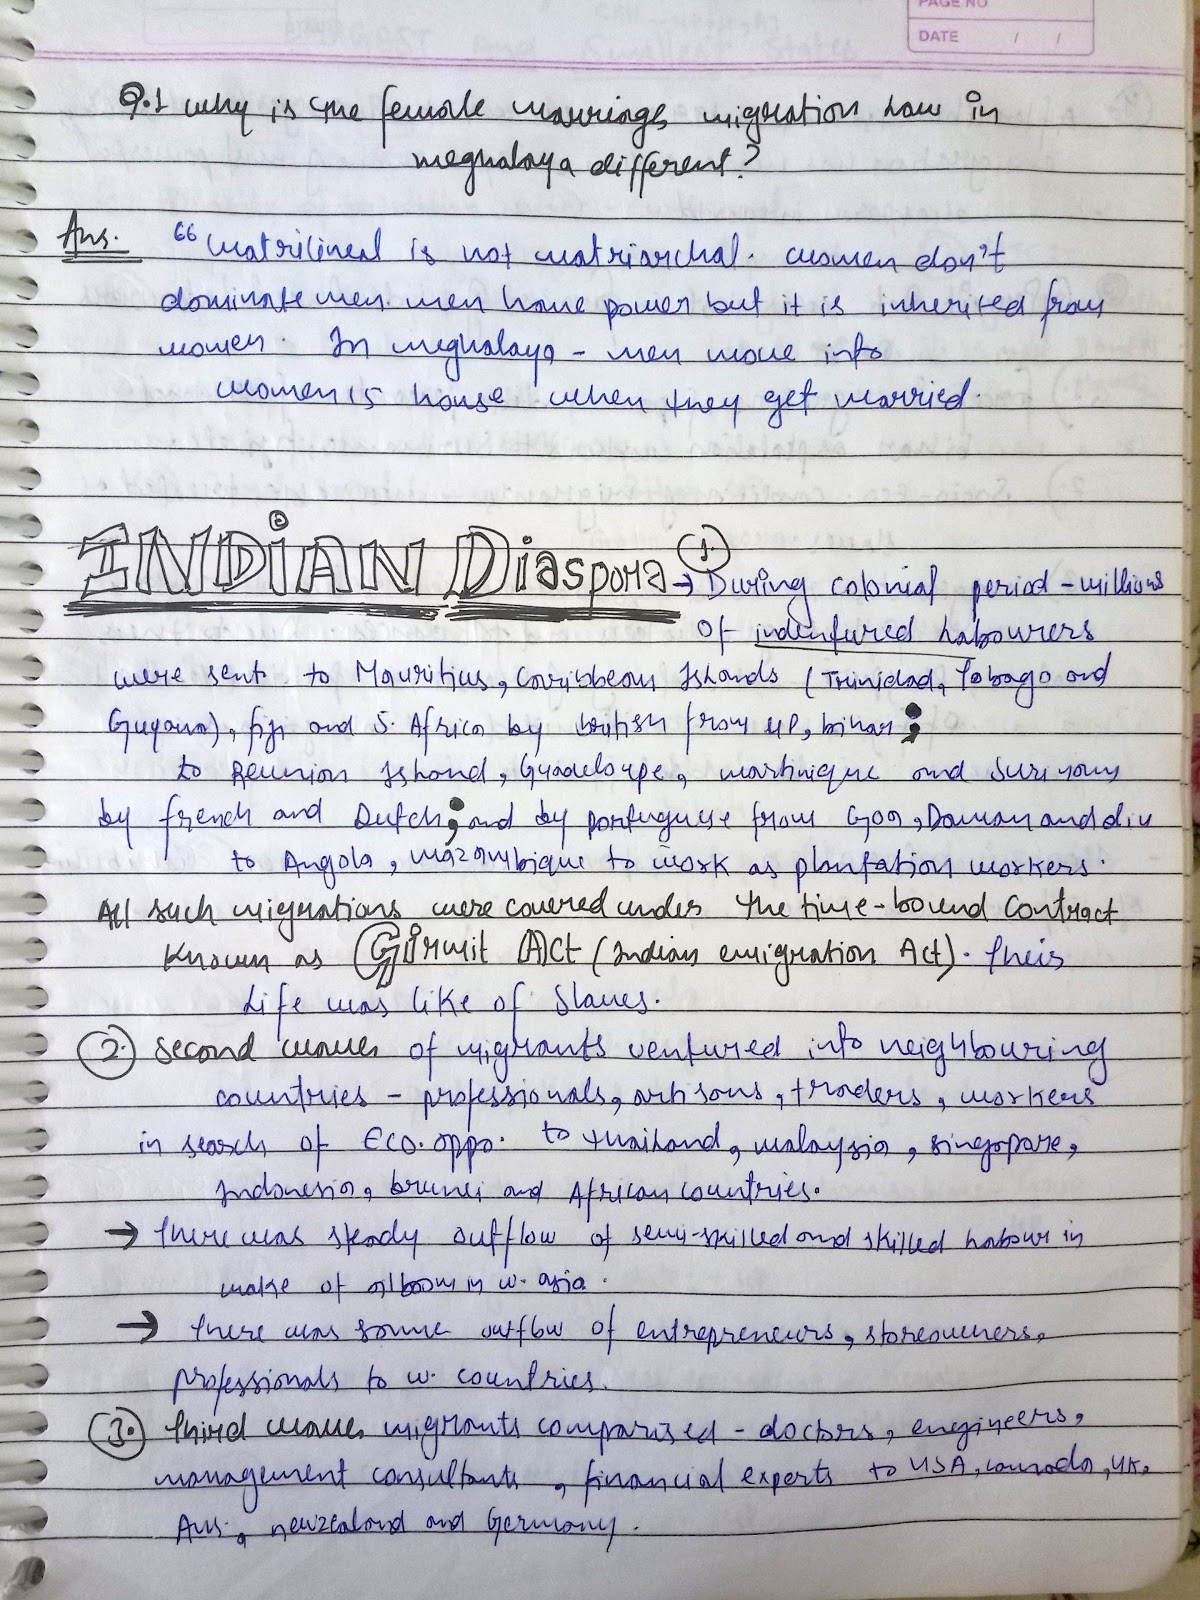 PAGE NO
DATE / /
Q.1 Why is the female marriage migration law in
meghalaya different?
Ans. "Matrilineal is not matriarchal. women don't
dominate men. men have power but it is inherited from
women. In meghalaya - men move into
women's house when they get married.
INDiAN Diaspora → 1. During colonial period - millions
of indentured labourers
were sent to Mauritius, Carribbean Islands (Trinidad, Tobago and
Guyana), fiji and S. Africa by british from UP, bihar;
to Reunion Island, Guadeloupe, martinique and Surinam
by french and Dutch; and by portuguese from Goa, Daman and diu
to Angola, mozambique to work as plantation workers.
All such migrations were covered under the time-bound contract
known as Girmit Act (Indian emigration Act). their
life was like of slaves.
2. Second waves of migrants ventured into neighbouring
countries - professionals, artisans, traders, workers
in search of Eco. oppo. to thailand, malaysia, singapore,
Indonesia, brunei and African countries.
→ there was steady outflow of semi-skilled and skilled labour in
wake of oil boom in w. asia.
→ there was some outflow of entrepreneurs, storeowners,
professionals to w. countries.
3. third wave, migrants comparised - doctors, engineers,
management consultants, financial experts to USA, canada, UK,
Aus., newzealand and Germany.